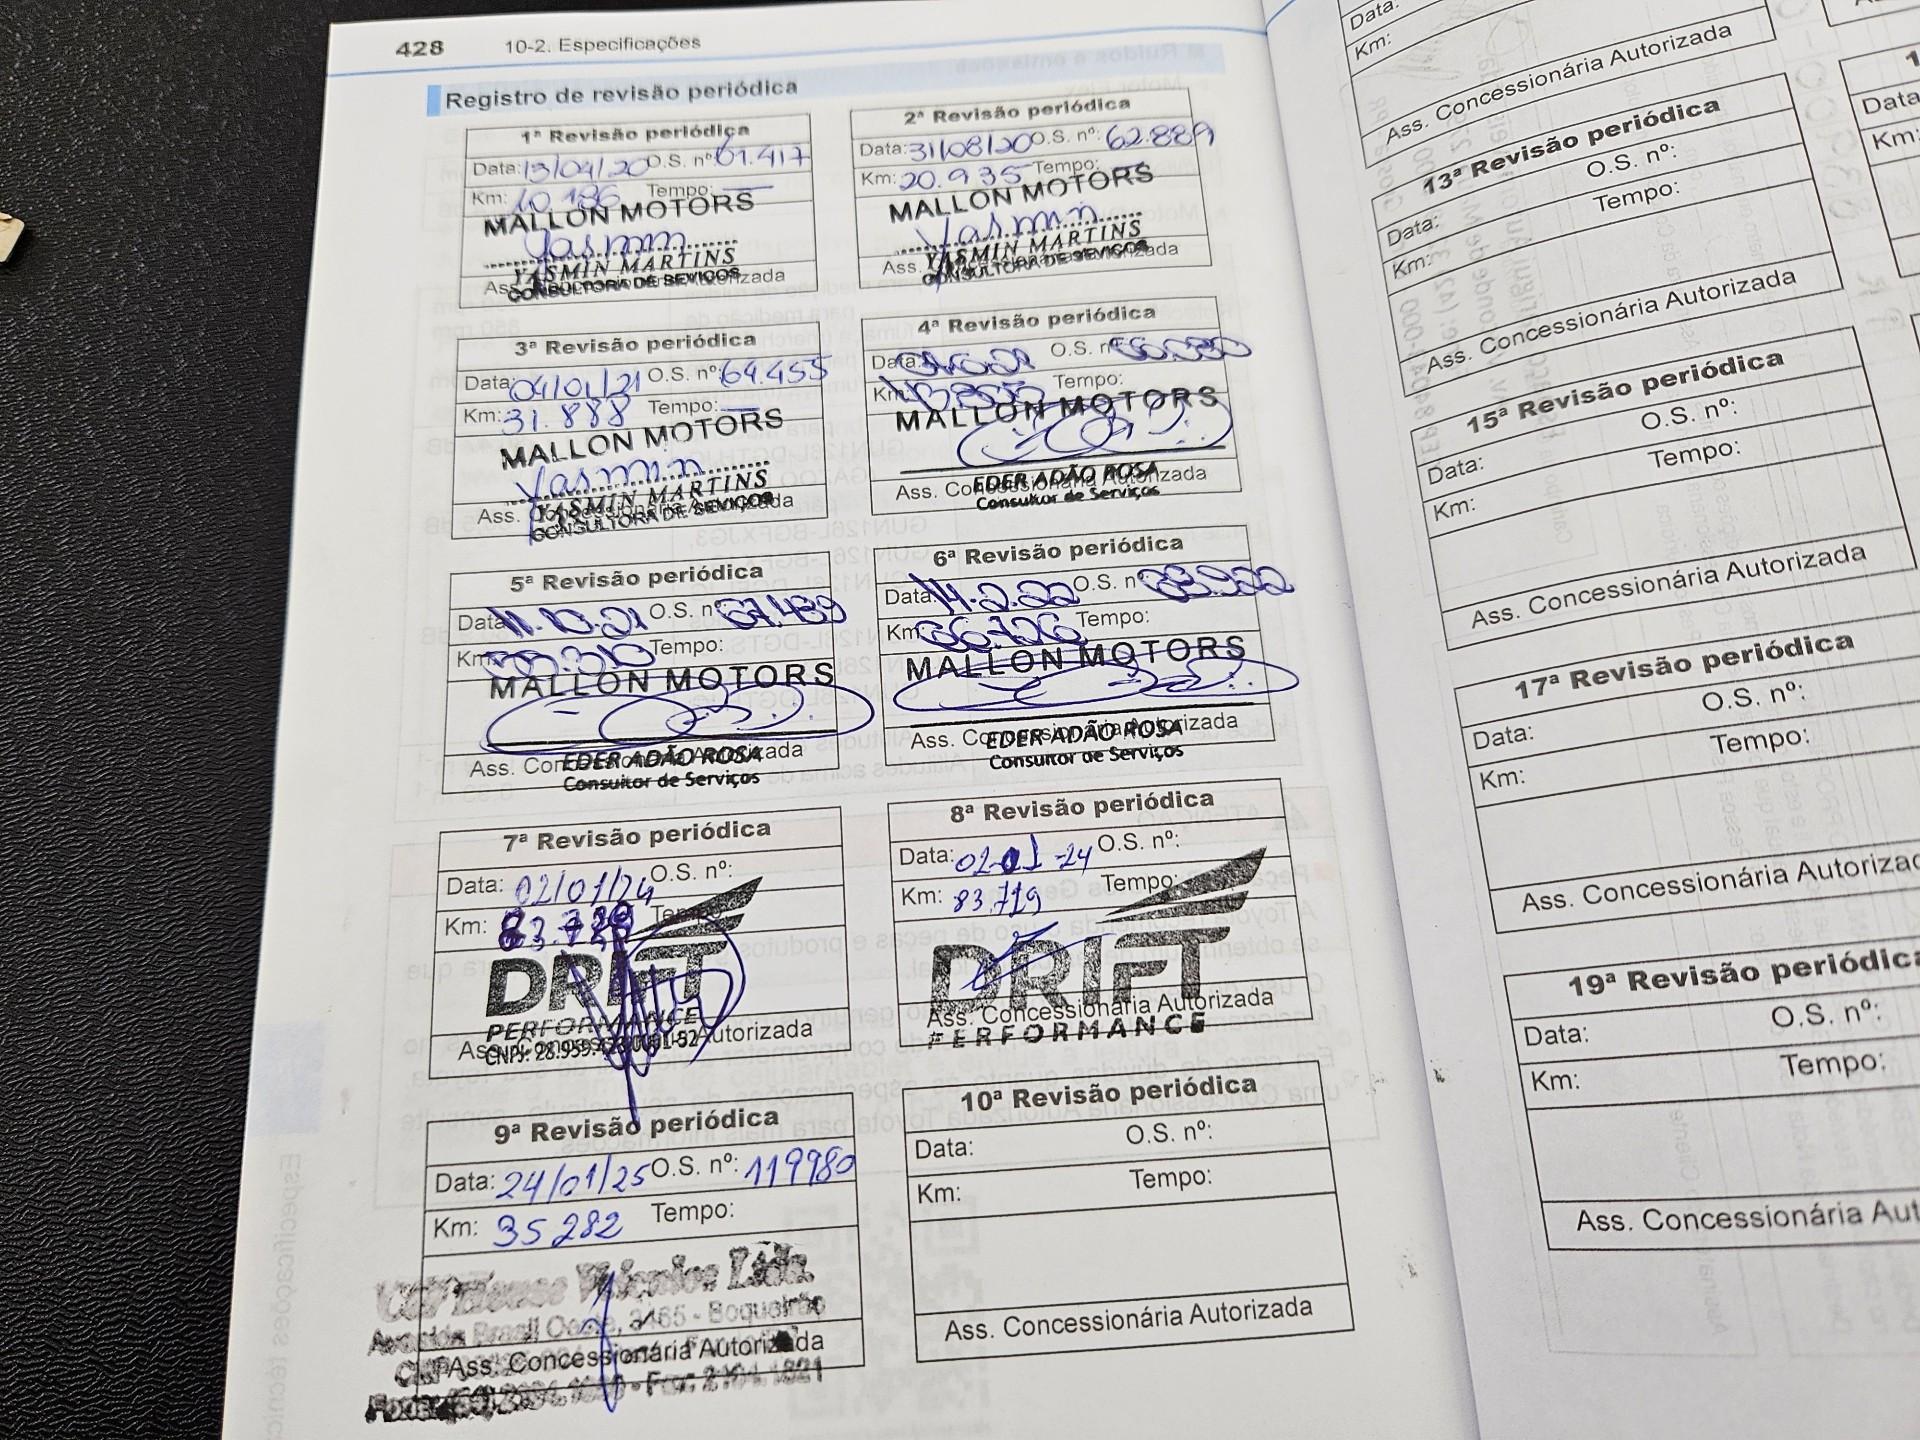 428 10-2. Especificações
Registro de revisão periódica
1ª Revisão periódica
Data: 13/04/20 O.S. nº: 61.417
Km: 10.186 Tempo: —
MALLON MOTORS
Yasmin
YASMIN MARTINS
CONSULTORA DE SEVIÇOS
Ass. Concessionária Autorizada
2ª Revisão periódica
Data: 31/08/20 O.S. nº: 62.889
Km: 20.935 Tempo: —
MALLON MOTORS
Yasmin
YASMIN MARTINS
CONSULTORA DE SEVIÇOS
Ass. Concessionária Autorizada
3ª Revisão periódica
Data: 04/01/21 O.S. nº: 64.455
Km: 31.888 Tempo: —
MALLON MOTORS
Yasmin
YASMIN MARTINS
CONSULTORA DE SEVIÇOS
Ass. Concessionária Autorizada
4ª Revisão periódica
Data: O.S. nº:
Km: Tempo:
MALLON MOTORS
EDER ADÃO ROSA
Ass. Concessionária Autorizada
Consultor de Serviços
5ª Revisão periódica
Data: 11.10.21 O.S. nº: 67.489
Km: Tempo:
MALLON MOTORS
EDER ADÃO ROSA
Ass. Concessionária Autorizada
Consultor de Serviços
6ª Revisão periódica
Data: 14.2.22 O.S. nº:
Km: 66.726 Tempo:
MALLON MOTORS
EDER ADÃO ROSA
Ass. Concessionária Autorizada
Consultor de Serviços
7ª Revisão periódica
Data: 02/01/24 O.S. nº:
Km: Tempo:
DRIFT
PERFORMANCE
Ass. Concessionária Autorizada
8ª Revisão periódica
Data: 02-01-24 O.S. nº:
Km: 83.719 Tempo:
DRIFT
Ass. Concessionária Autorizada
PERFORMANCE
9ª Revisão periódica
Data: 24/01/25 O.S. nº: 119980
Km: 35282 Tempo:
Veiculos Ltda.
Brasil Oeste, 3465 - Boqueirão
Ass. Concessionária Autorizada
10ª Revisão periódica
Data: O.S. nº:
Km: Tempo:
Ass. Concessionária Autorizada
Especificações técnic
Data:
Km:
Ass. Concessionária Autorizada
13ª Revisão periódica
Data: O.S. nº:
Km: Tempo:
Ass. Concessionária Autorizada
15ª Revisão periódica
Data: O.S. nº:
Km: Tempo:
Ass. Concessionária Autorizada
17ª Revisão periódica
Data: O.S. nº:
Km: Tempo:
Ass. Concessionária Autorizad
19ª Revisão periódica
Data: O.S. nº:
Km: Tempo:
Ass. Concessionária Aut
Data
Km: